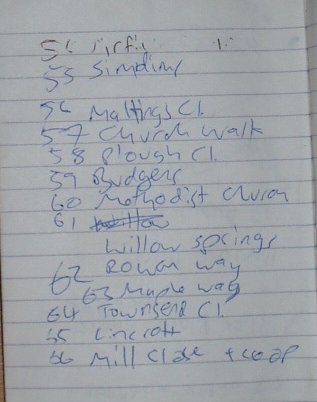 54
55
56 Maltings Cl.
57 Church Walk
58 Plough Cl.
59 Budgens
60 Methodist Church
61 Willow
Willow springs
62 Rowan Way
63 Maple way
64 Townsend Cl.
65 Lincroft
66 Mill Close + coop